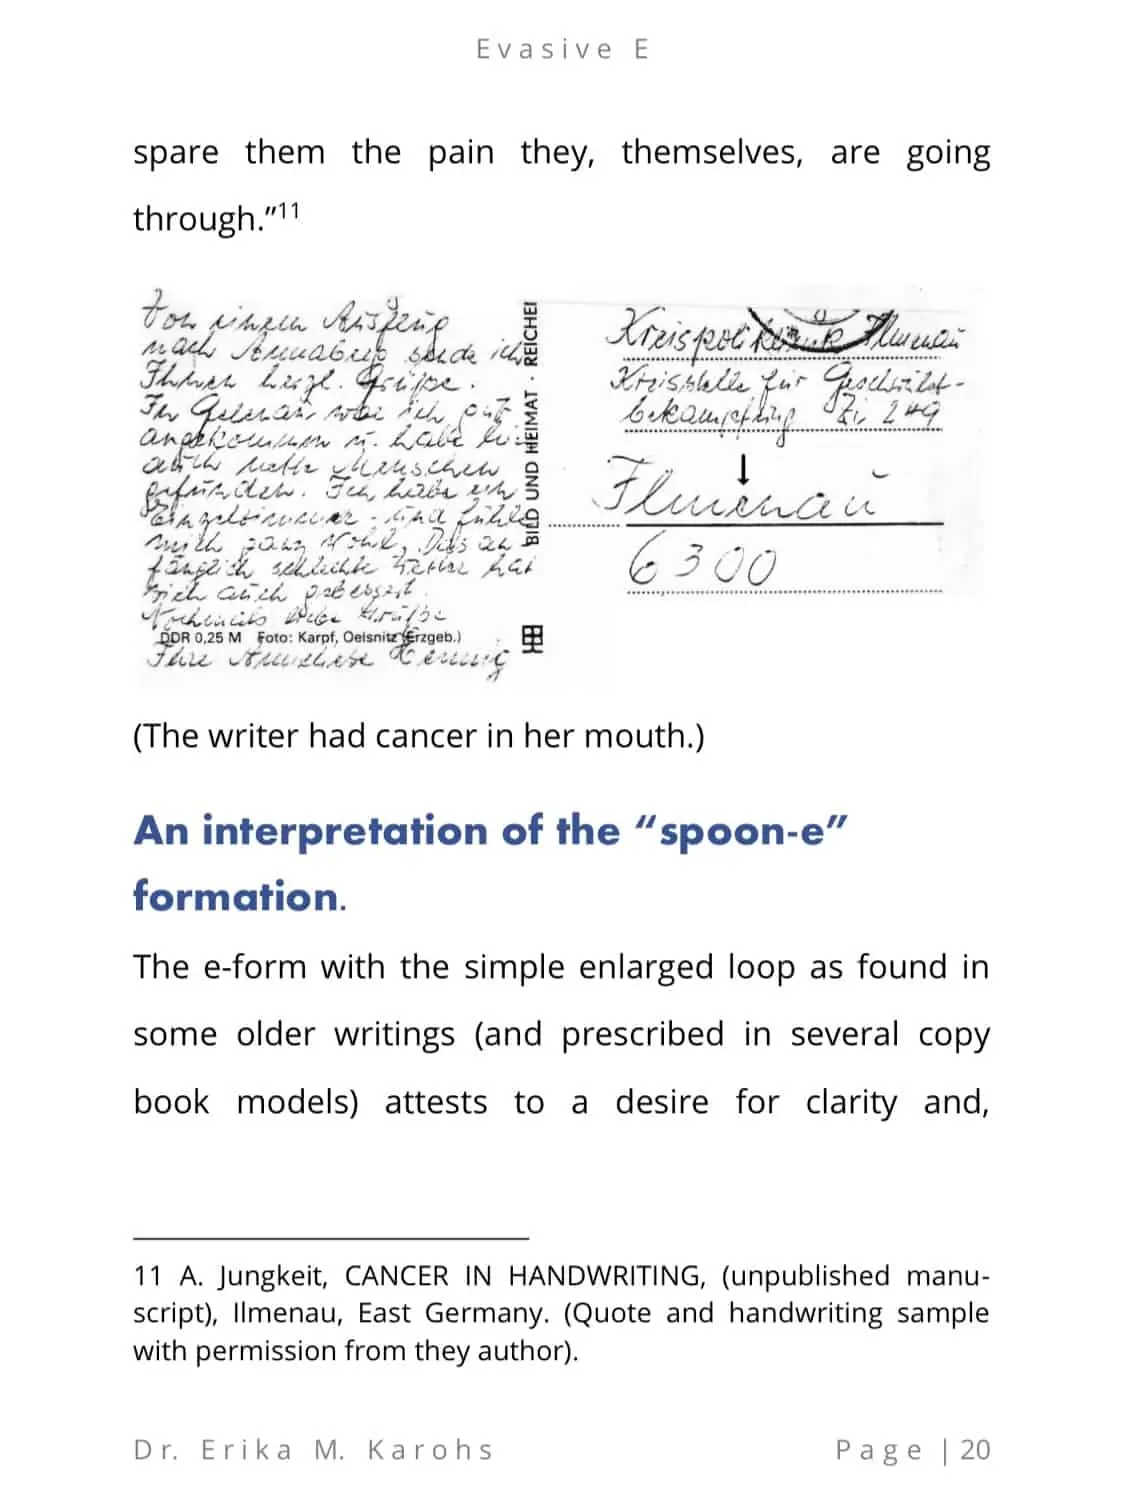 Evasive E
spare them the pain they, themselves, are going
through.”11
Von einem Ausflug
nach Annaberg sende ich
Ihnen herzl. Grüße.
In Geleran, war ich gut
angekommen u. habe hier
auch nette Menschen
gefunden. Ich habe ein
Einzelzimmer - und fühle
mich ganz wohl, Das an
fänglich schlechte Wetter hat
sich auch gebessert.
Nochmals liebe Grüße
DDR 0,25 M Foto: Karpf, Oelsnitz (Erzgeb.)
Ihre Anneliese Hennig
BILD UND HEIMAT · REICHE
Kreispoliklinik Ilmenau
Kreisstelle für Geschwulst-
bekämpfung Zi. 249
Ilmenau
6300
(The writer had cancer in her mouth.)
An interpretation of the “spoon-e”
formation.
The e-form with the simple enlarged loop as found in
some older writings (and prescribed in several copy
book models) attests to a desire for clarity and,
11 A. Jungkeit, CANCER IN HANDWRITING, (unpublished manu-
script), Ilmenau, East Germany. (Quote and handwriting sample
with permission from they author).
Dr. Erika M. Karohs Page | 20